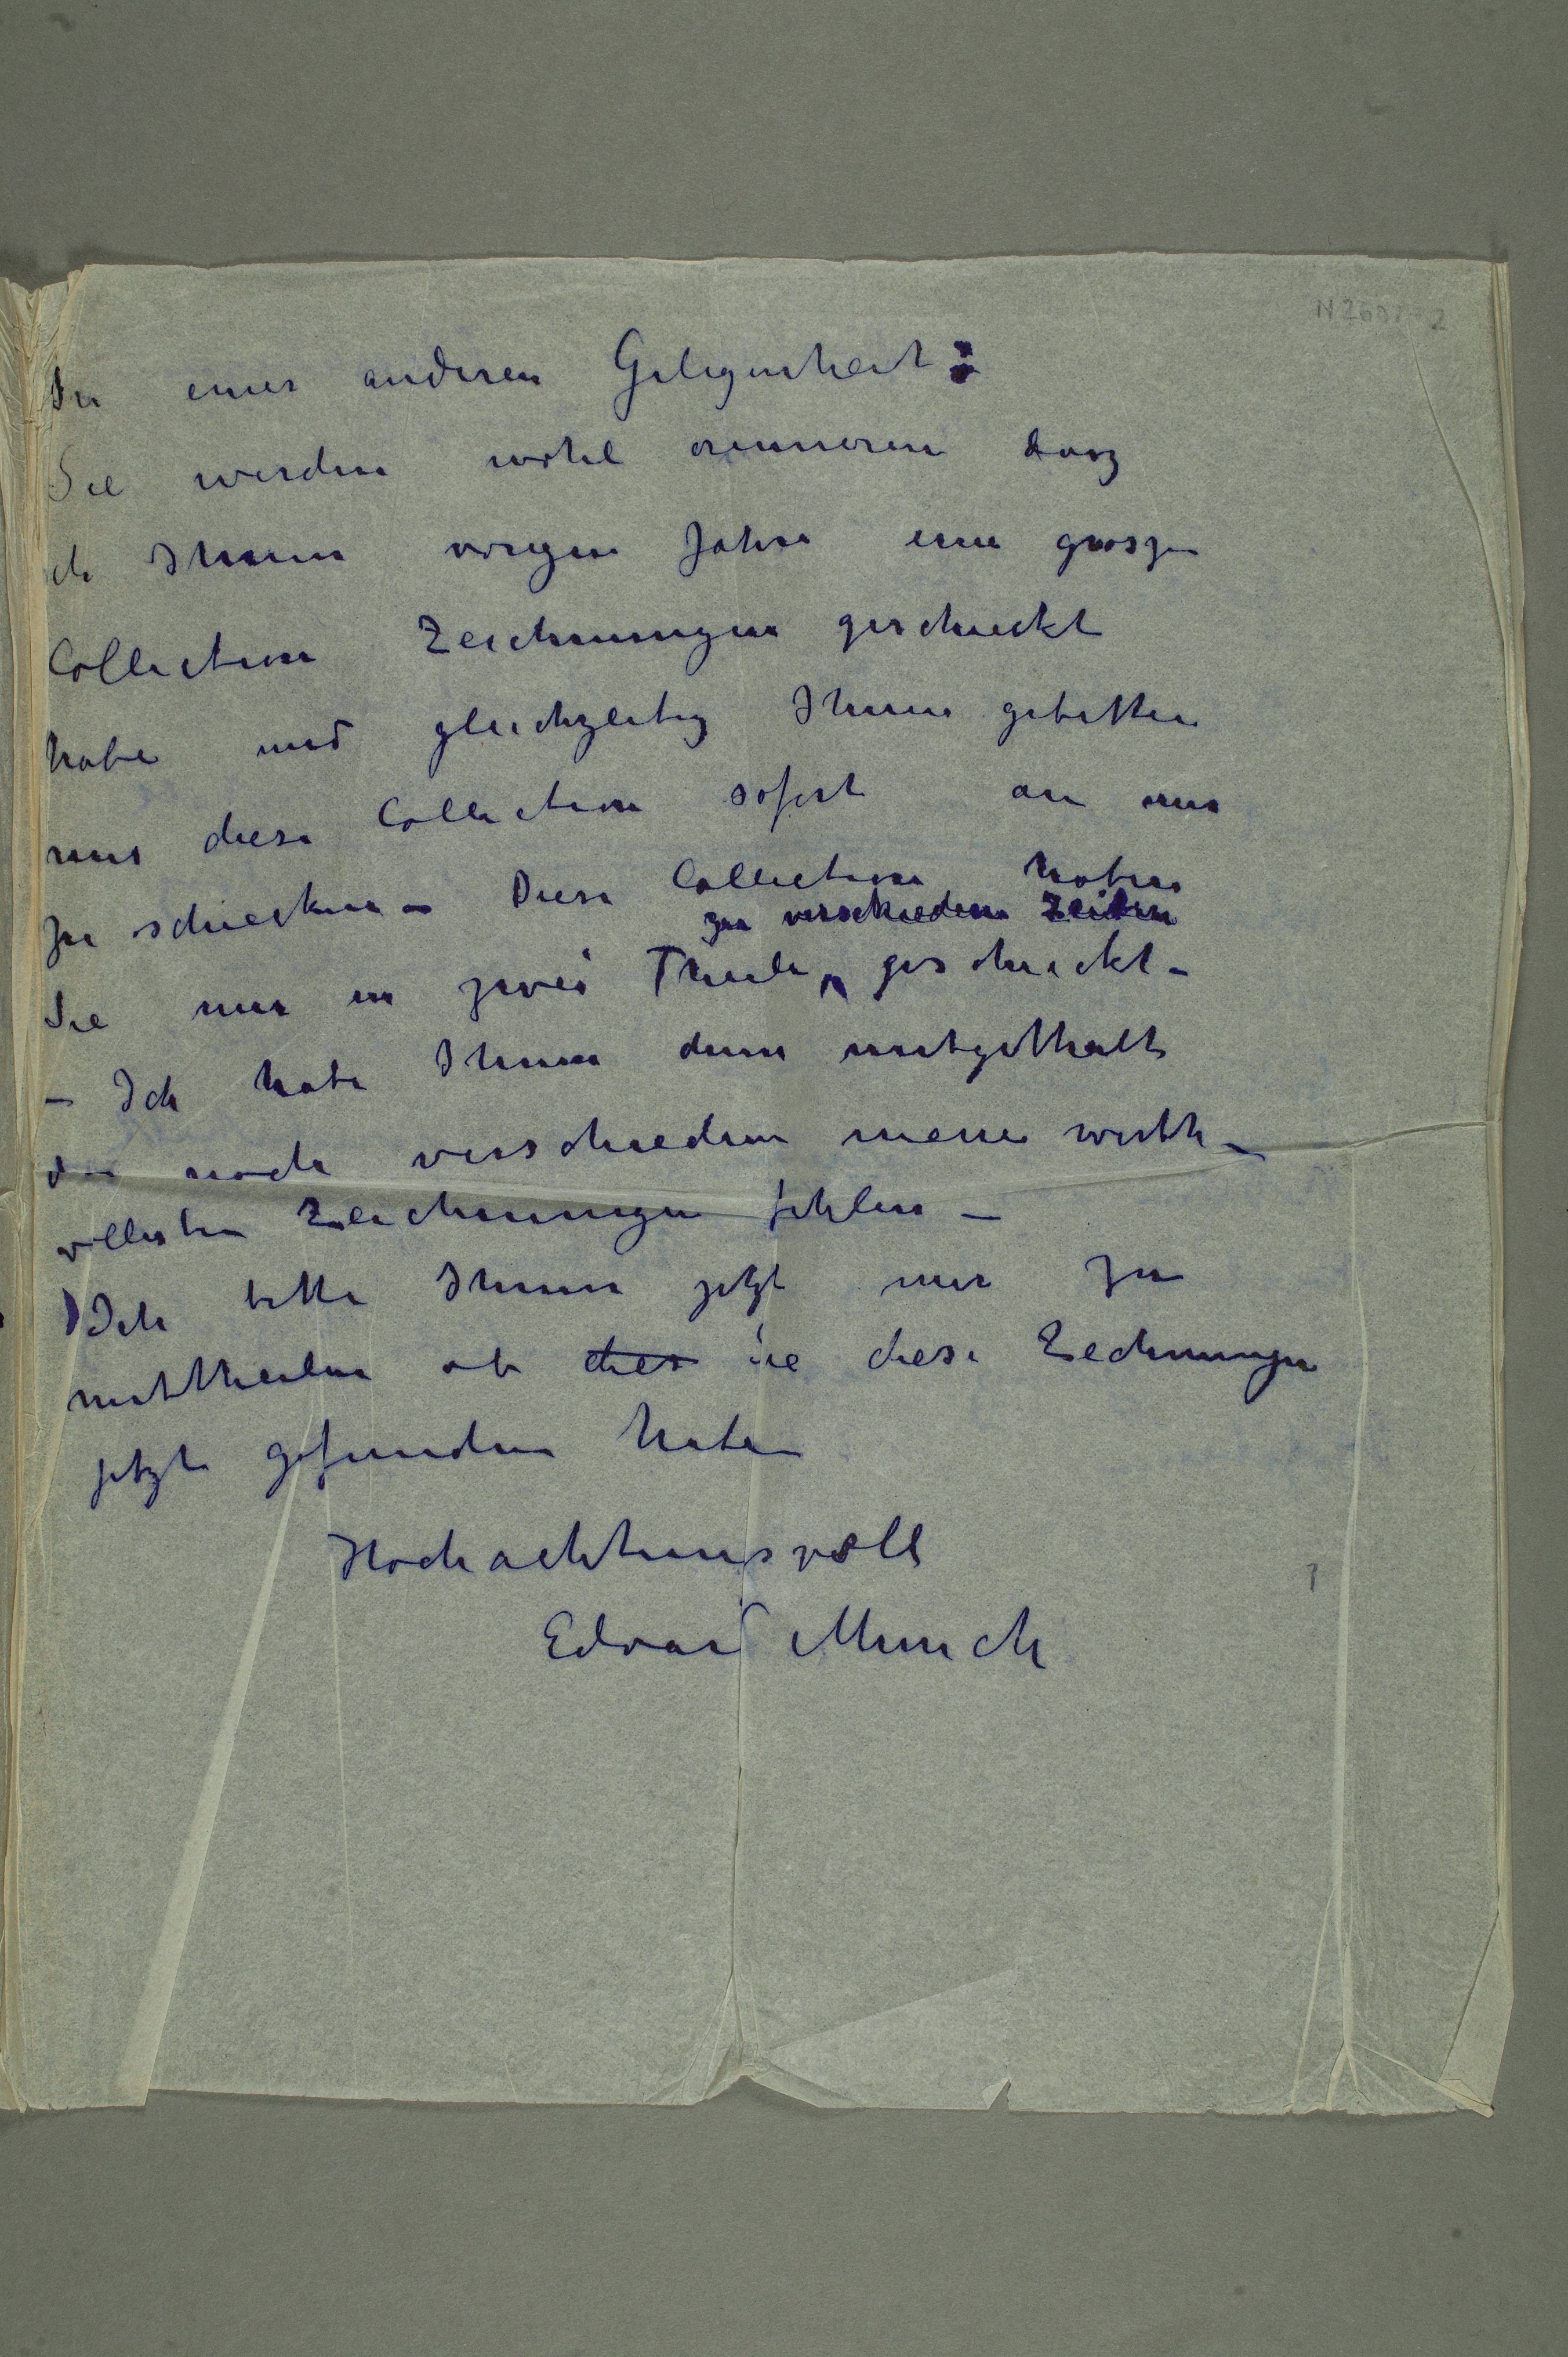 In einer anderen Gelegenheit:
Sie werden wohl erinneren dasz
ich Ihnen vorigen Jahre eine groszen
Collection Zeichnungen geschickt
habe und gleichzeitig Ihnen gebetten
mir diese Collection sofort an mir
zu schicken – Diese Collection haben
zu verschiedene Zeiten
Sie mir in zwei Theile geschickt –
– Ich habe Ihnen dann mitgetheilt
das noch verschiedene meine werth–
vollsten Zeichnungen fehlen –
Ich bitte Ihnen jetzt mir zu
mittheilen ob dies Sie diese Zechnungen
jetzt gefunden haben
Hochachtunsvoll
Edvard Munch